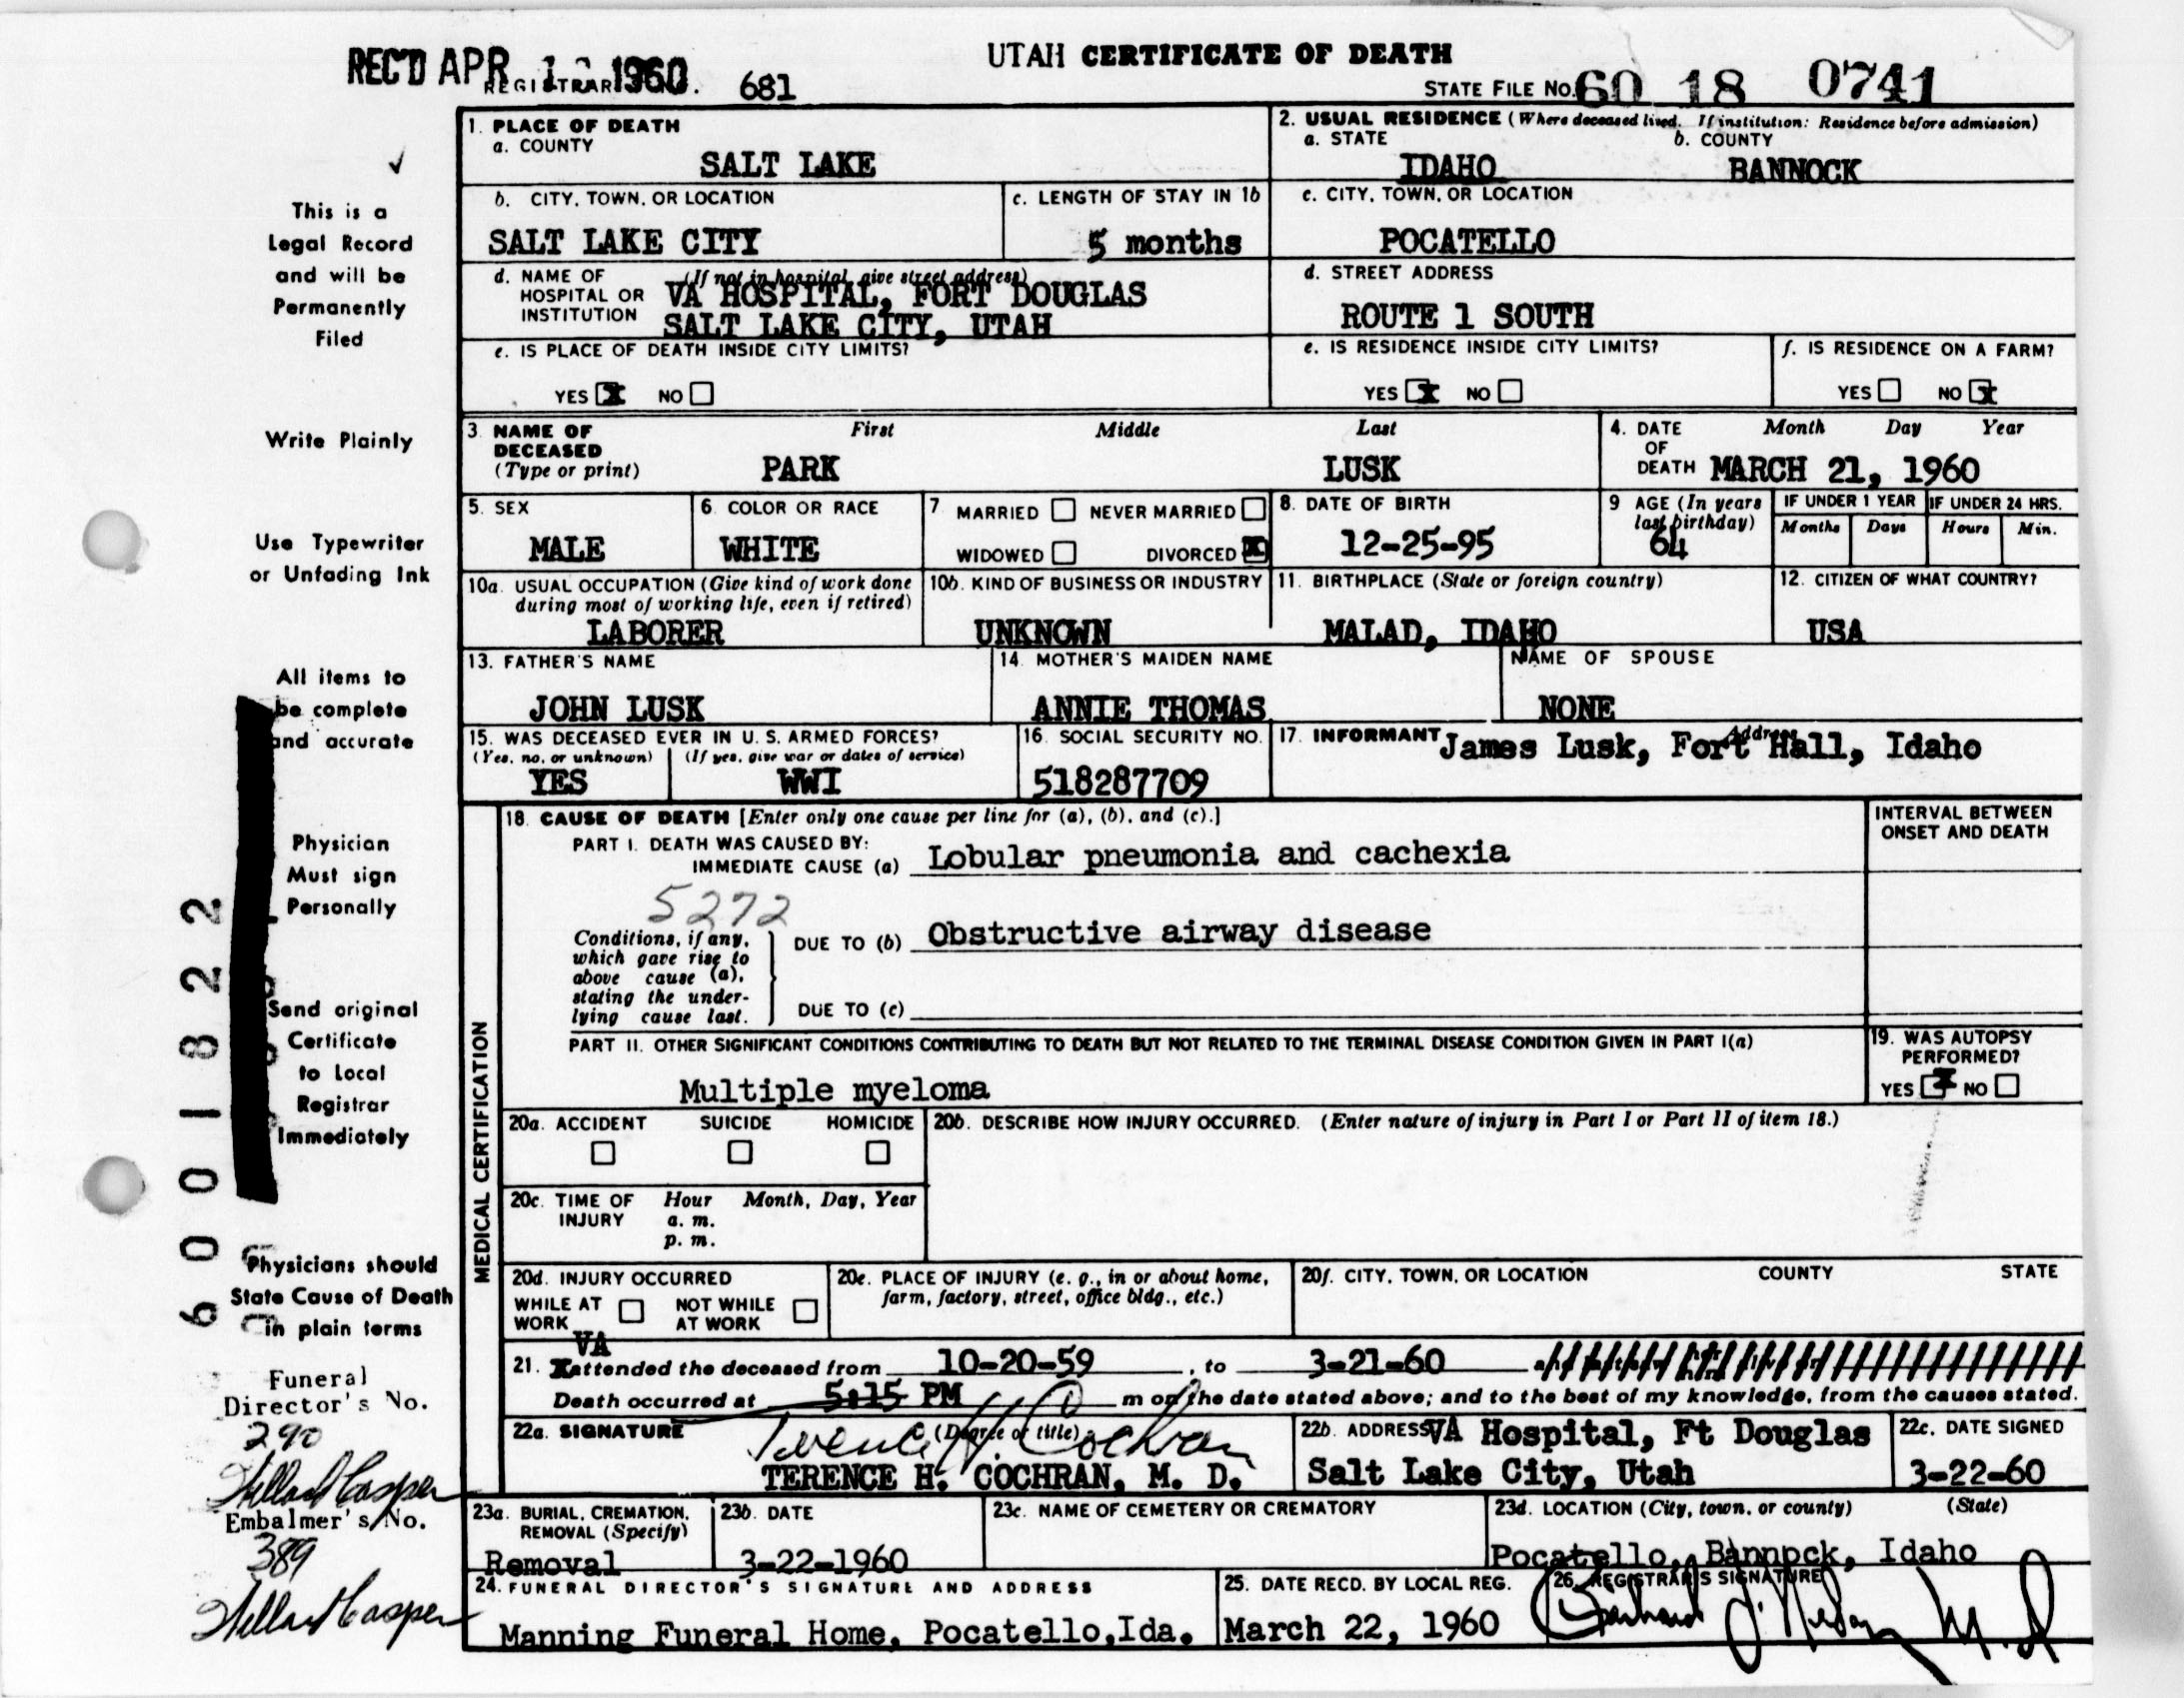 REC'D APR 1 1960.
REGISTRAR
681
UTAH CERTIFICATE OF DEATH
STATE FILE NO. 60 18 0741
This is a
Legal Record
and will be
Permanently
Filed
Write Plainly
Use Typewriter
or Unfading Ink
All items to
be complete
and accurate
Physician
Must sign
Personally
Send original
Certificate
to Local
Registrar
Immediately
Physicians should
State Cause of Death
in plain terms
6001822
Funeral
Director's No.
290
Willard Casper
Embalmer's No.
389
Willard Casper
1. PLACE OF DEATH
a. COUNTY
SALT LAKE
2. USUAL RESIDENCE (Where deceased lived. If institution: Residence before admission)
a. STATE b. COUNTY
IDAHO BANNOCK
b. CITY, TOWN, OR LOCATION
SALT LAKE CITY
c. LENGTH OF STAY IN 1b
5 months
c. CITY, TOWN, OR LOCATION
POCATELLO
d. NAME OF HOSPITAL OR INSTITUTION (If not in hospital, give street address)
VA HOSPITAL, FORT DOUGLAS
SALT LAKE CITY, UTAH
d. STREET ADDRESS
ROUTE 1 SOUTH
e. IS PLACE OF DEATH INSIDE CITY LIMITS?
YES X NO
e. IS RESIDENCE INSIDE CITY LIMITS?
YES X NO
f. IS RESIDENCE ON A FARM?
YES NO X
3. NAME OF DECEASED (Type or print)
First Middle Last
PARK LUSK
4. DATE OF DEATH Month Day Year
MARCH 21, 1960
5. SEX
MALE
6. COLOR OR RACE
WHITE
7 MARRIED NEVER MARRIED
WIDOWED DIVORCED X
8. DATE OF BIRTH
12-25-95
9 AGE (In years last birthday)
64
IF UNDER 1 YEAR IF UNDER 24 HRS.
Months Days Hours Min.
10a. USUAL OCCUPATION (Give kind of work done during most of working life, even if retired)
LABORER
10b. KIND OF BUSINESS OR INDUSTRY
UNKNOWN
11. BIRTHPLACE (State or foreign country)
MALAD, IDAHO
12. CITIZEN OF WHAT COUNTRY?
USA
13. FATHER'S NAME
JOHN LUSK
14. MOTHER'S MAIDEN NAME
ANNIE THOMAS
NAME OF SPOUSE
NONE
15. WAS DECEASED EVER IN U. S. ARMED FORCES?
(Yes, no, or unknown) (If yes, give war or dates of service)
YES WWI
16. SOCIAL SECURITY NO.
518287709
17. INFORMANT Address
James Lusk, Fort Hall, Idaho
MEDICAL CERTIFICATION
18. CAUSE OF DEATH [Enter only one cause per line for (a), (b), and (c).]
INTERVAL BETWEEN ONSET AND DEATH
PART I. DEATH WAS CAUSED BY:
IMMEDIATE CAUSE (a) Lobular pneumonia and cachexia
5272
Conditions, if any, which gave rise to above cause (a), stating the underlying cause last.
DUE TO (b) Obstructive airway disease
DUE TO (c)
PART II. OTHER SIGNIFICANT CONDITIONS CONTRIBUTING TO DEATH BUT NOT RELATED TO THE TERMINAL DISEASE CONDITION GIVEN IN PART I(a)
Multiple myeloma
19. WAS AUTOPSY PERFORMED?
YES X NO
20a. ACCIDENT SUICIDE HOMICIDE
20b. DESCRIBE HOW INJURY OCCURRED. (Enter nature of injury in Part I or Part II of item 18.)
20c. TIME OF INJURY Hour Month, Day, Year
a. m.
p. m.
20d. INJURY OCCURRED
WHILE AT WORK NOT WHILE AT WORK
20e. PLACE OF INJURY (e. g., in or about home, farm, factory, street, office bldg., etc.)
20f. CITY, TOWN, OR LOCATION COUNTY STATE
VA
21. X attended the deceased from 10-20-59, to 3-21-60
Death occurred at 5:15 PM m on the date stated above; and to the best of my knowledge, from the causes stated.
22a. SIGNATURE (Degree or title)
Terence H. Cochran
TERENCE H. COCHRAN, M. D.
22b. ADDRESS VA Hospital, Ft Douglas
Salt Lake City, Utah
22c. DATE SIGNED
3-22-60
23a. BURIAL, CREMATION, REMOVAL (Specify)
Removal
23b. DATE
3-22-1960
23c. NAME OF CEMETERY OR CREMATORY
23d. LOCATION (City, town, or county) (State)
Pocatello, Bannock, Idaho
24. FUNERAL DIRECTOR'S SIGNATURE AND ADDRESS
Manning Funeral Home, Pocatello, Ida.
25. DATE RECD. BY LOCAL REG.
March 22, 1960
26. REGISTRAR'S SIGNATURE